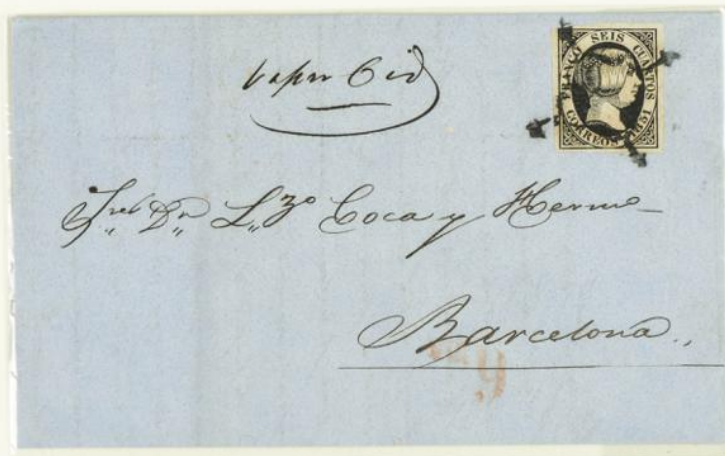 Vapor Cid
FRANCO SEIS CUARTOS
CORREOS 1851
Sres Dn L,,zo Coca y Hermo
Barcelona,,